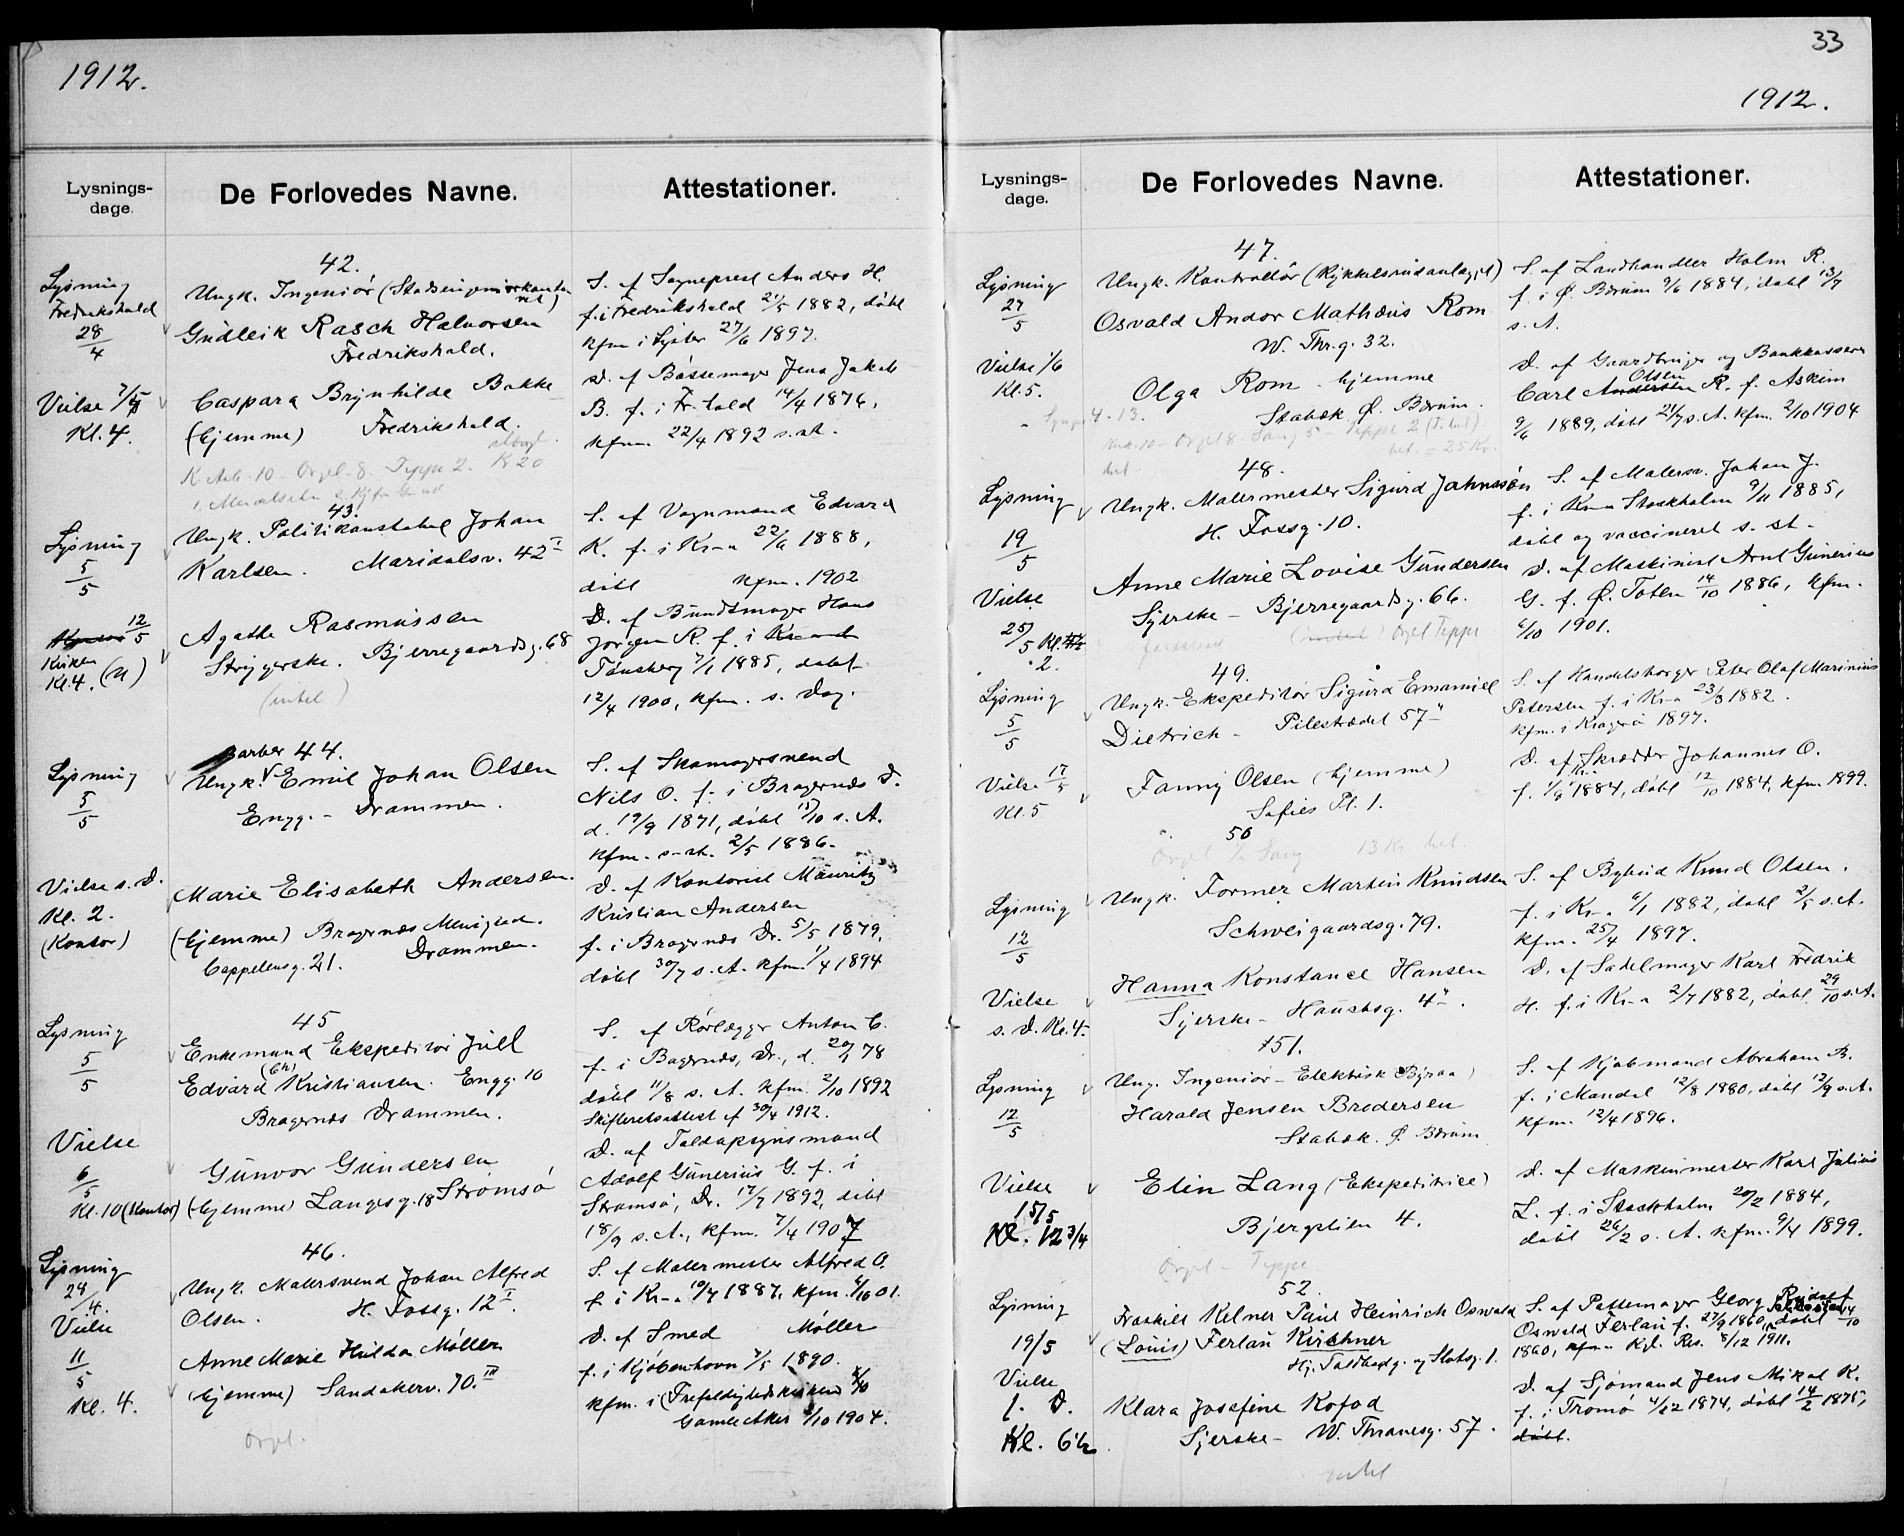 1912.
Lysnings-
dage.
De Forlovedes Navne.
Attestationer.
42.
Lysning
Fredrikshald
28/4
Vielse 7/5
Kl. 4.
Ungk. Ingeniør (Stadsingeniørkonto
ret)
Gudleik Rasch Halvorsen
Fredrikshald.
Caspara Brynhilde Bakke
(hjemme) Fredrikshald.
S. af Sogneprest Anders H.
f. i Fredrikshald 21/5 1882, døbt
kfm i 27/6 1897.
D. af Bøssemager Jens Jakob
B. f. i Fr.hald 14/4 1876,
kfm. 22/4 1892 s. st.
43.
Lysning
5/5
12/5
Kirken
Kl. 4. (U)
Ungk. Politikonstabel Johan
Karlsen. Maridalsv. 42 I
Agathe Rasmussen
Strygerske. Bjerregaardsg. 68
(enkel)
S. af Vognmand Edvard
K. f. i Kr-a 22/6 1888,
døbt kfm. 1902
D. af Bundtmager Hans
Jørgen R. f. i
Tønsberg 7/1 1885, døbt
12/4 1900, kfm. s. Dag.
Barber 44.
Lysning
5/5
Vielse s. D.
Kl. 2.
(Kontor)
Ungk. V Emil Johan Olsen
Engg. - Drammen.
Marie Elisabeth Andersen.
(hjemme) Bragernæs Menighed.
Cappelensg. 21. Drammen.
S. af Skomagersvend
Nils O. f. i Bragernæs D.
d. 19/9 1871, døbt 15/10 s. A.
kfm. s. st. 2/5 1886.
D. af Kontorist Mauritz
Kristian Andersen
f. i Bragernæs Dr. 5/5 1879,
døbt 30/7 s. A. kfm. 1/4 1894
45
Lysning
5/5
Vielse
6/5
Kl. 10 (Kontor)
Enkemand Ekspeditør Juell
(Ch)
Edvard Kristiansen. Engg. 10
Bragernæs Drammen.
Gunvor Gundersen
(hjemme) Langesg. 18 Strømsø
S. af Rørlægger Anton C.
f. i Bragernæs, Dr., d. 20/1 78
døbt 11/8 s. A. kfm. 2/10 1892
Skifteretsattest af 30/4 1912.
D. af Toldopsynsmand
Adolf Gunerius G. f. i
Strømsø, Dr. 17/7 1892, døbt
18/9 s. A., kfm. 7/4 1907
46.
Lysning
28/4.
Vielse
11/5
Kl. 4.
Ungk. Malersvend Johan Alfred
Olsen. H. Fossg. 12 I.
Anne Marie Hulda Møller
(hjemme) Sandakerv. 70. III
Orgel.
S. af Malermester Alfred O.
f. i Kr-a 10/7 1887, kfm. 6/10 01.
D. af Smed Møller
f. i Kjøbenhavn 7/5 1890.
kfm. i (Trefoldighedskirken
Gamle Aker 2/10 1904.
33
1912.
Lysnings-
dage.
De Forlovedes Navne.
Attestationer.
47.
Lysning
27/5
Vielse 1/6
Kl. 5.
Ungk. Kontrollør (Rykkelsrudanlægget)
Osvald Andor Mathæus Rom
W. Thr. g. 32.
Olga Rom - hjemme
Stabæk Ø. Bærum.
S. af Landhandler Holm R.
f. i Ø. Bærum 9/6 1884, døbt 13/7
s. A.
D. af Gaardbruger og Bankkasserer
Olsen
Carl Andersen R. f. Askim
9/6 1889, døbt 21/7 s. A. kfm. 2/10 1904
48.
Lysning
19/5
Vielse
25/5 Kl.
2.
Ungk. Malermester Sigurd Johnssøn
H. Fossg. 10.
Anne Marie Lovise Gundersen
Syerske - Bjerregaardsg. 66.
Orgel Teppe
S. af Malersv. Johan J.
f. i Stockholm 9/11 1885,
døbt og vaccineret s. st.
D. af Maskinist Arnt Gunerius
G. f. Ø. Toten 14/10 1886, kfm.
6/10 1901.
49.
Lysning
5/5
Vielse 17/5
Kl. 5
Ungk. Ekspeditør Sigurd Emanuel
Dietrich - Pilestrædet 57 II
Fanny Olsen (hjemme)
Sofies Pl. 1.
S. af Handelsborger Peter Olaf Marinius
Petersen f. i Kr-a 23/3 1882.
kfm. i Kragerø 1897.
D. af Skrædder Johannes O.
f. Kr.a 1/8 1884, døbt 12/10 1884, kfm. 1899.
50
13 Kr. bet.
Lysning
12/5
Vielse
s. D. Kl. 4.
Ungk. Former Martin Knudsen
Schweigaardsg. 79.
Hanna Konstance Hansen
Syerske - Hauchsg. 4 II.
S. af Bybud Knud Olsen.
f. i Kr-a 6/1 1882, døbt 2/5 s. A.
kfm. 25/4 1897.
D. af Sadelmager Karl Fredrik
H. f. i Kr-a 2/7 1882, døbt 29/10 s. A.
51.
Lysning
12/5
Vielse
15/5
Kl. 12 3/4
Ung. Ingeniør - Elektrisk Byraa
Harald Jensen Brodersen
Stabæk. Ø. Bærum
Elin Lang (Ekspeditrice)
Bjergslien 4.
Orgel - Teppe
S. af Kjøbmand Abraham B.
f. i Mandal 12/8 1880, døbt 12/9 s. A.
kfm. 12/4 1896.
D. af Maskinmester Karl Julius
L. f. i Stockholm 20/2 1884,
døbt 26/2 s. A. kfm. 9/4 1899.
52.
Lysning
19/5
Vielse
f. D.
Kl. 6 1/2
Fraskilt Kelner Paul Heinrich Oswald
(Louis) Ferlau Kirschner
Hj. Toldbodg. og Slotsg. 1.
Klara Josefine Kofod
Syerske - W. Thranesg. 57.
enkel
S. af Pottemager Georg
Oswald Ferlau f. 27/9 1860, døbt 14/10
1860, Kgl. Res. 8/12 1911.
D. af Sjømand Jens Mikal K.
f. i Tromø 4/12 1874, døbt 14/2 1875,
døbt.